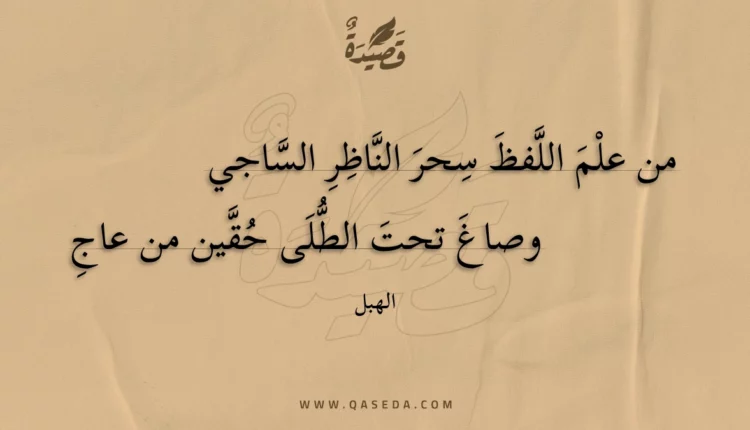 قَصِيْدَةٌ
من علْمَ اللَّفظَ سِحرَ النَّاظِرِ السَّاجي
وصاغَ تحتَ الطُّلَى حُقَّين من عاجِ
الهبل
WWW.QASEDA.COM